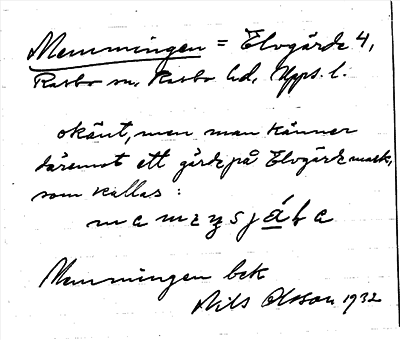 Memmingen = Elvgärde 4,
Rasbo sn, Rasbo hd, Upps. l.
okänt, men man känner
däremot ett gärde på Elvgärde mark,
som kallas:
Memmingen bek
Nils Olsson 1932